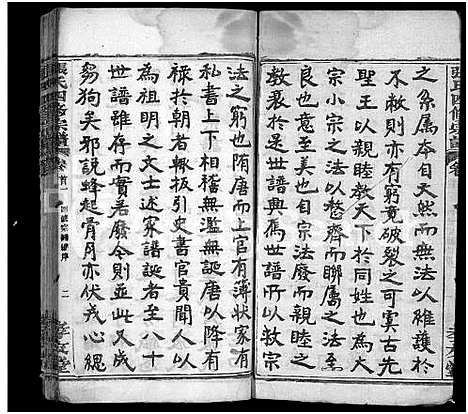 之系属本自天然而無以維護於
不敝亦有窮竟破裂之可虞古先
聖王以親睦敎天下於同姓也为大
宗小宗之法以整齊而聯属之法至
良也意至美也自宗法廢而親睦之
敎衰於是世譜興焉世譜以敎宗
法之窮也何隋唐而上官有薄狀家有
私書上下相維無濫無誕唐以降有
禄於朝者輒攀引史書官貴以
為祖明之文士述家譜誕者至八十
世譜雖存而實若廢今則並此又成
芻狗矣邪說蜂起骨肉亦伏戎心總
張氏四修宗譜
卷首一
二
孝友堂